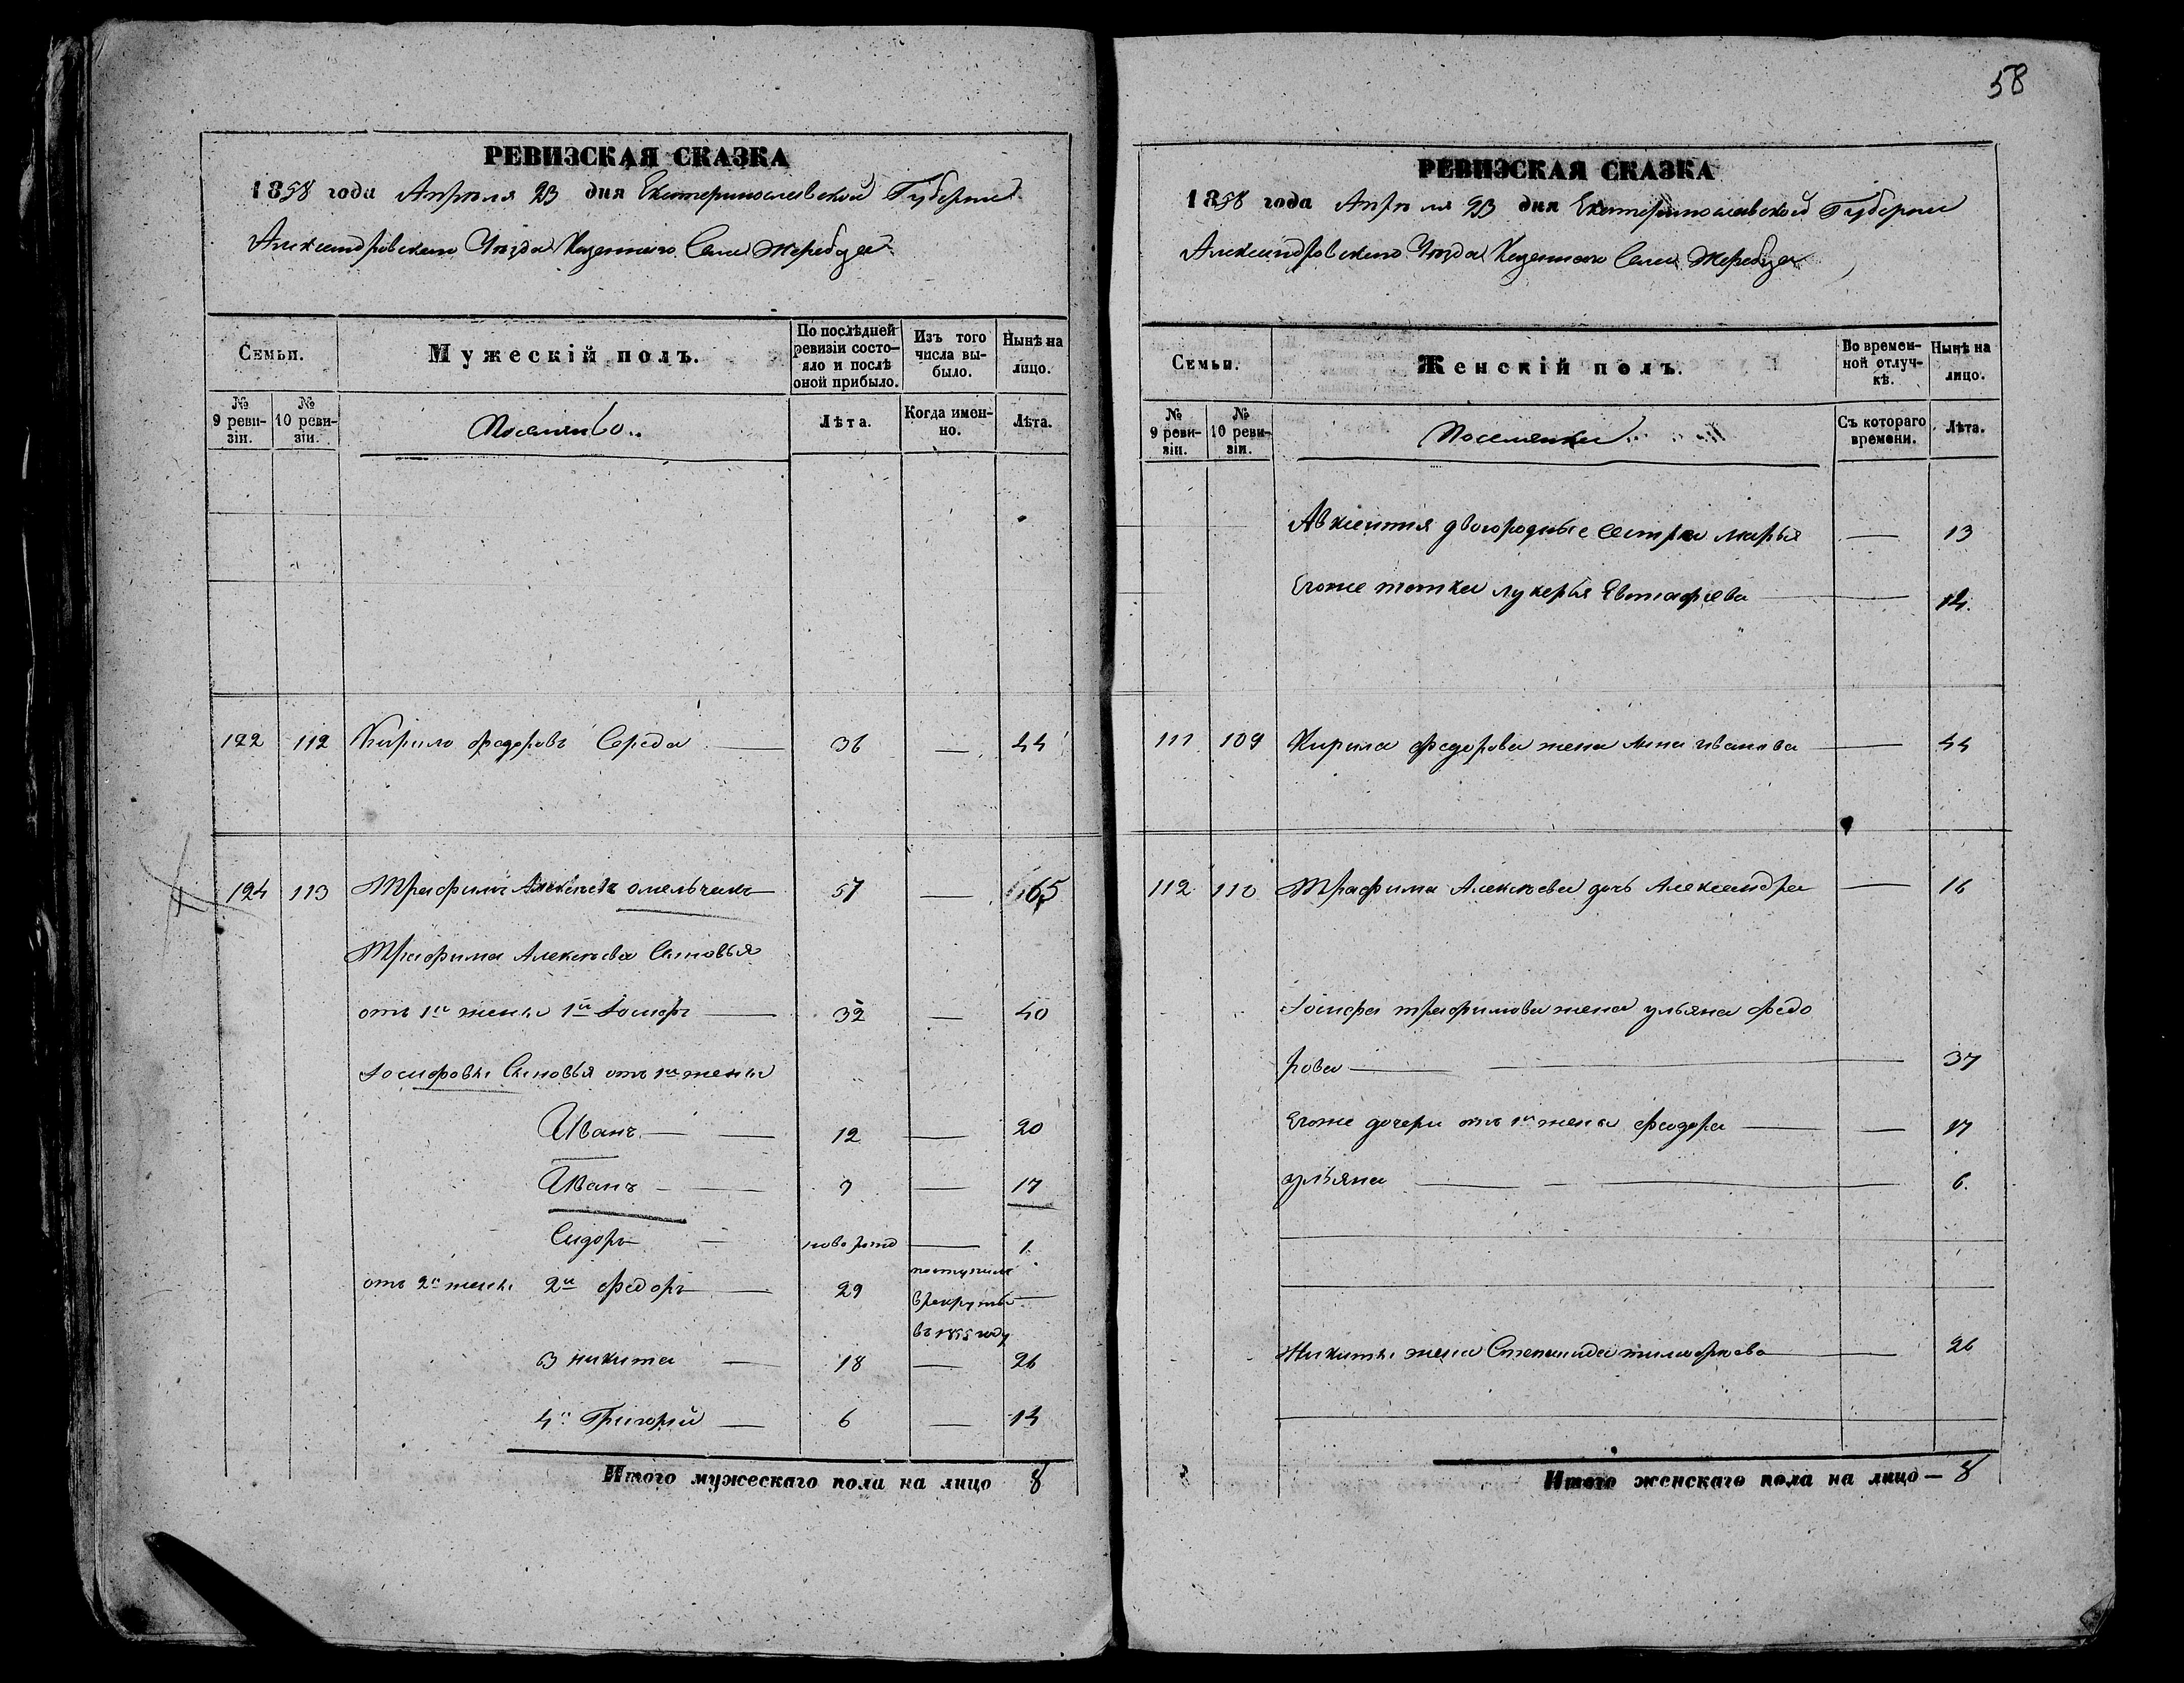 РЕВИЗСКАЯ СКАЗКА
1858 года Апрѣля 23 дня Екатеринославской Губерніи
Александровскаго Уѣзда Казеннаго Села Жеребца
Семьи.
Мужескій полъ.
По послѣдней ревизіи состояло и послѣ оной прибыло.
Изъ того числа выбыло.
Нынѣ на лицо.
№ 9 ревизіи.
№ 10 ревизіи.
Лѣта.
Когда именно.
Лѣта.
122 112 Кирило Федоровъ Середа — 36 — 44
124 113 Трафимъ Алексѣевъ Омельчакъ 57 — 65
Трафима Алексѣева Сыновья
отъ 1й жены 1й Іосифъ — 32 — 40
Іосифовы Сыновья отъ 1й жены
Иванъ — — 12 — 20
Иванъ — — 9 — 17
Сидоръ — новорожд — 1
отъ 2й жены 2й Федоръ — 29 поступилъ
в рекруты —
въ 1855 году
3 Никита — 18 — 26
4й Григорій — 6 — 14
Итого мужескаго пола на лицо 8
58
РЕВИЗСКАЯ СКАЗКА
1858 года Апрѣля 23 дня Екатеринославской Губерніи
Александровскаго Уѣзда Казеннаго Села Жеребца
Семьи.
Женскій полъ.
Во временной отлучкѣ.
Нынѣ на лицо.
№ 9 ревизіи.
№ 10 ревизіи.
Поселянки
Съ котораго времени.
Лѣта.
Авксентія двогородные сестра Марья — 13
Егоже тетка Лукерья Евстафіева — 14
111 109 Кирила Федорова жена Анна Иванова — 44
112 110 Трафима Алексѣева дочь Александра — 16
Іосифа Трафимова жена Ульяна Федо
рова — — 37
Егоже дочери отъ 1й жены Феодора — — 17
Ульяна — — 6
Никиты жена Степанида Тимофѣева — 26
Итого женскаго пола на лицо — 8